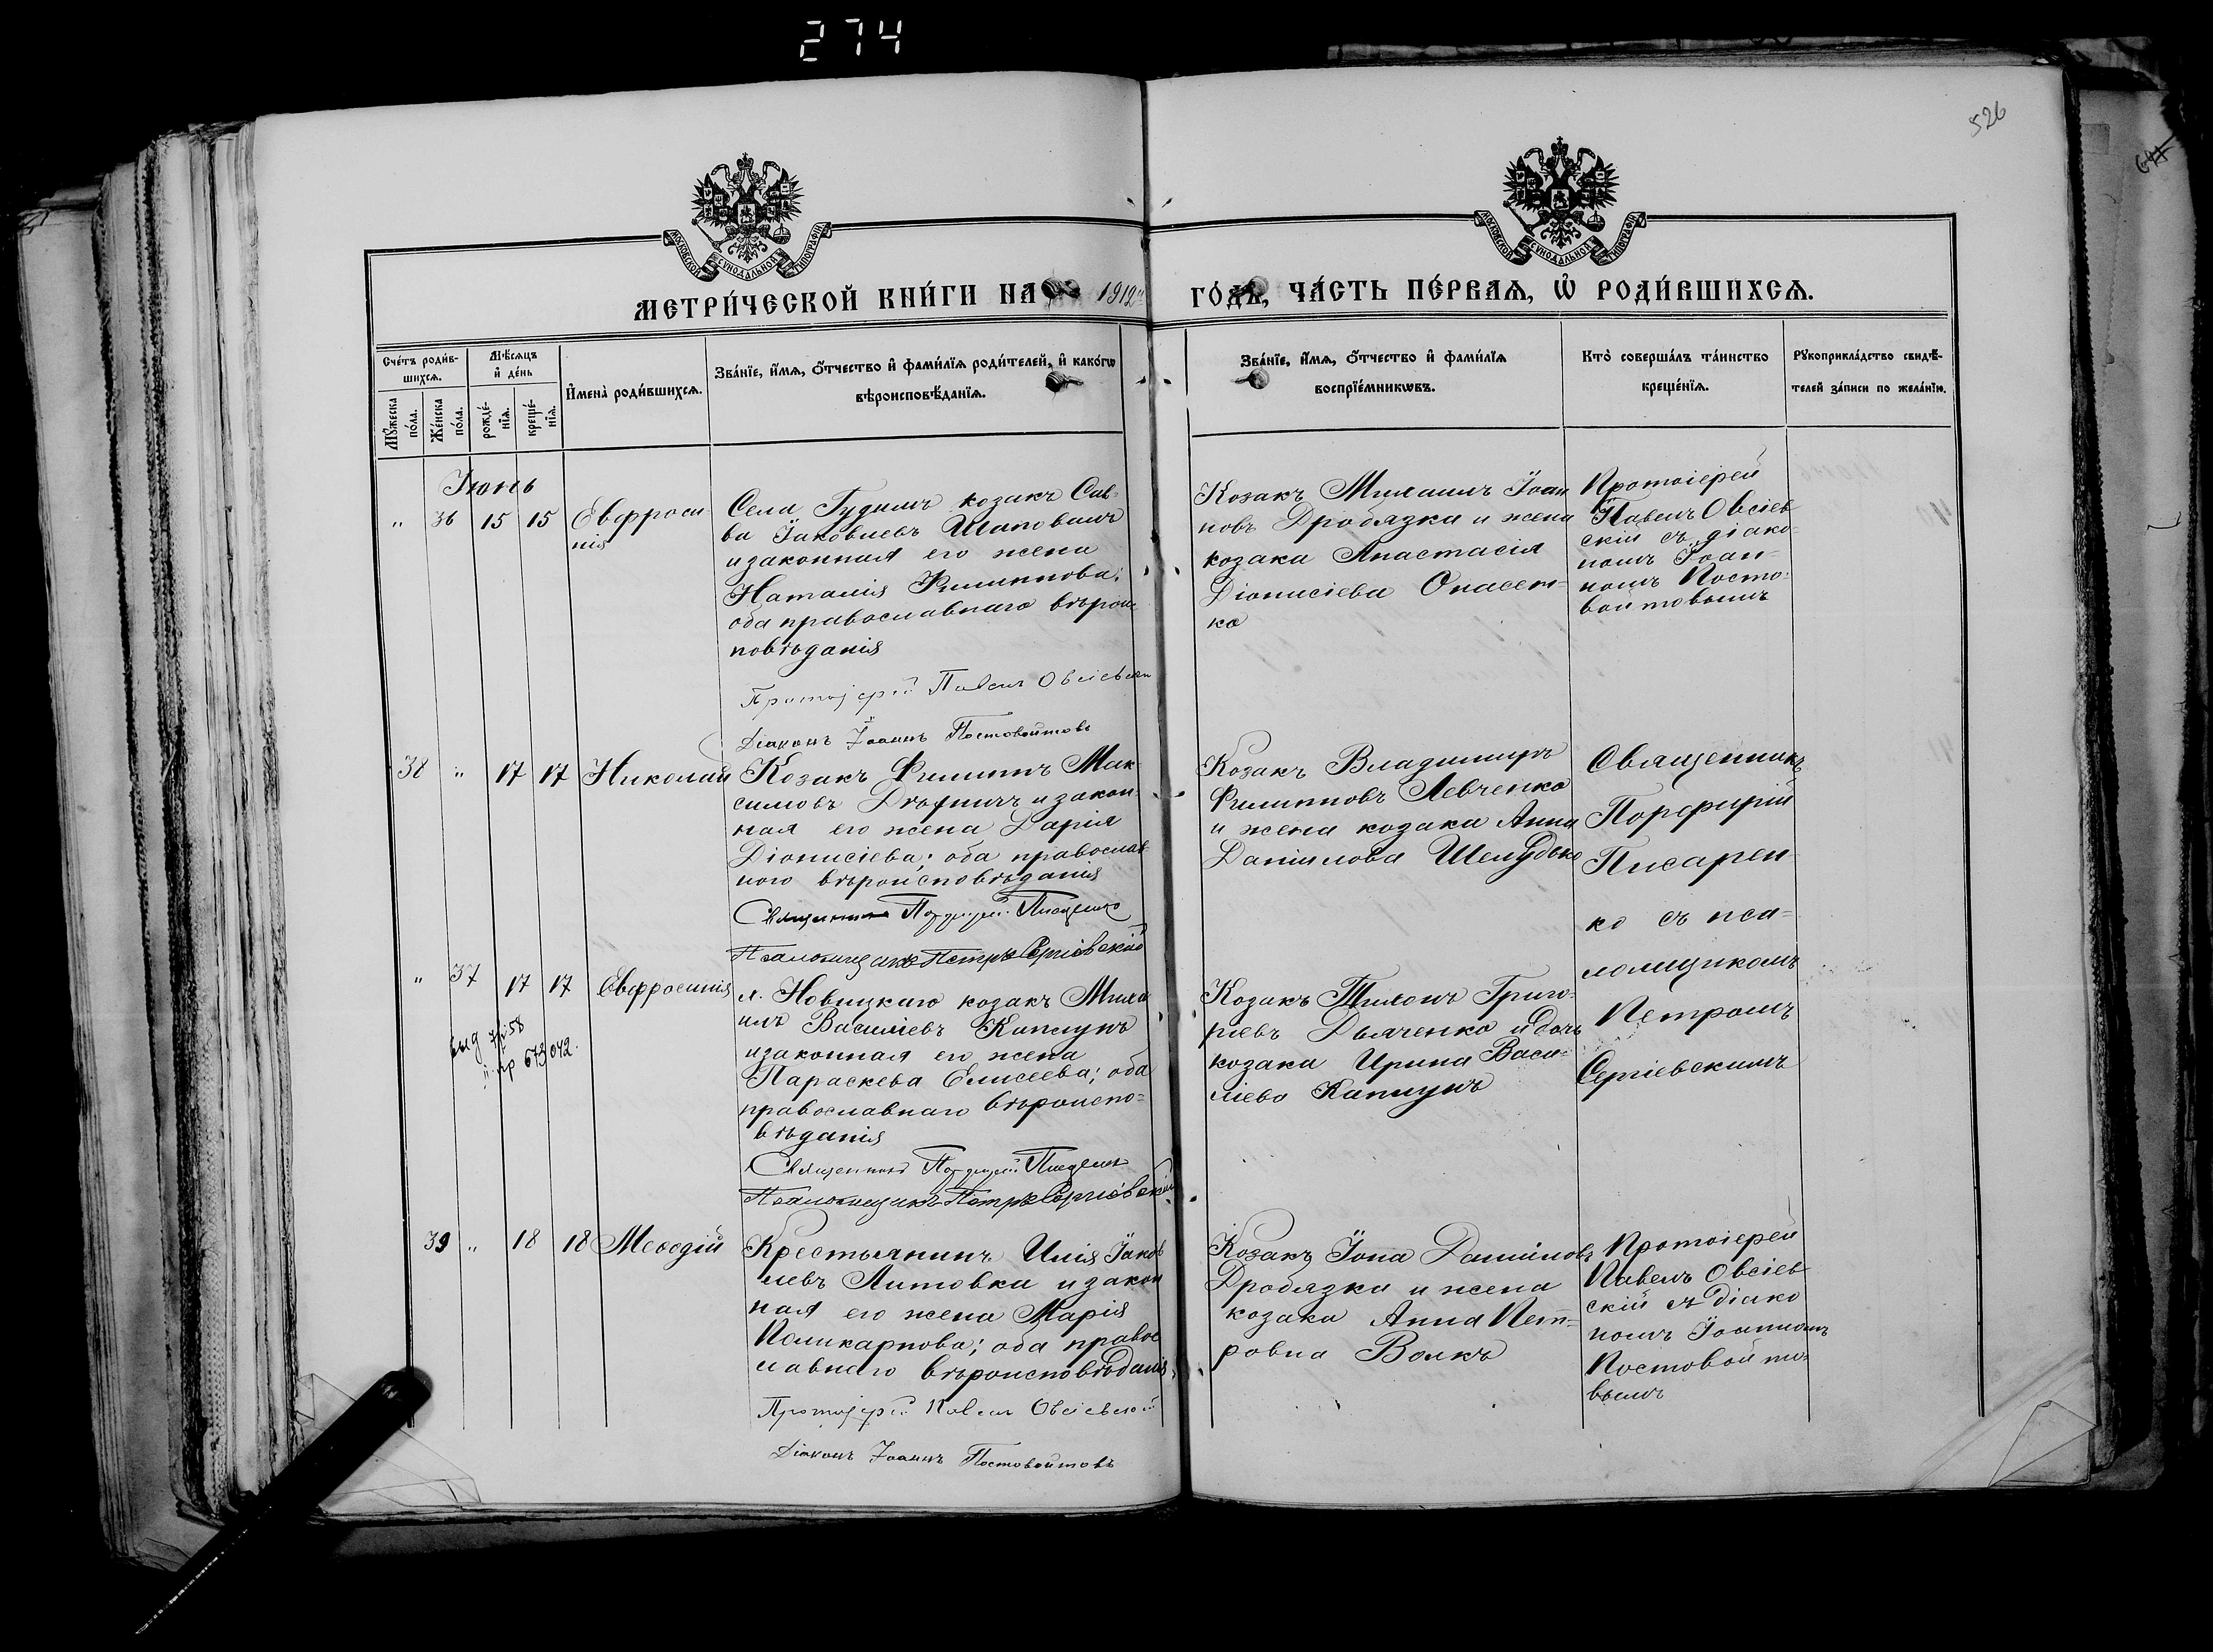 274
526
МОСКОВСКОЙ СѴНОДАЛЬНОЙ ТИПОГРАФІИ
МОСКОВСКОЙ СѴНОДАЛЬНОЙ ТИПОГРАФІИ
МЕТРИ́ЧЕСКОЙ КНИ́ГИ НА 1912й ГО́ДЪ, ЧА́СТЬ ПЕ́РВАѦ, Ѡ҆ РОДИ́ВШИХСѦ.
Сче́тъ роди́в-
шихсѧ.
Мꙋ́жеска по́ла.
Же́нска по́ла.
Мѣ́сѧцъ
и҆ де́нь
рожде́-
нїѧ.
креще́-
нїѧ.
И҆мена̀ роди́вшихсѧ.
Зва́нїе, и҆́мѧ, ѻ҆́тчество и҆ фами́лїѧ роди́телей, и҆ како́гѡ
вѣроисповѣ́данїѧ.
Зва́нїе, и҆́мѧ, ѻ҆́тчество и҆ фами́лїѧ
воспрїе́мникѡвъ.
Кто̀ соверша́лъ та́инство
креще́нїѧ.
Рꙋкоприкла́дство свидѣ́-
телей за́писи по жела́нїю.
Іюнь
" 36 15 15 Евфроси-
нія
Села Гудимъ козакъ Сав-
ва Іаковлевъ Шаповалъ
и законная его жена
Наталія Филиппова;
оба православнаго вѣроис
повѣданія
Протоіерей Павелъ Овсіевскій
Діаконъ Іоаннъ Постовойтовъ
Козакъ Михаилъ Іоан
новъ Дробязка и жена
козака Анастасія
Діонисіева Опасет-
ко
Протоіерей
Павелъ Овсіев
скій съ діако-
номъ Іоан-
номъ Посто-
войтовымъ
38 " 17 17 Николай
Козакъ Филиппъ Мак
симовъ Дѣфничъ и закон-
ная его жена Дарія
Діонисіева; оба православ
ного вѣроисповѣданія
Священникъ Порфирій Писаренко
Псаломщикъ Петръ Сергіевскій
Козакъ Владимиръ
Филипповъ Левченко
и жена козака Анна
Даніилова Шелудько
Священникъ
Порфирій
Писарен-
ко съ пса-
ломщикомъ
Петромъ
Сергіевскимъ
" 37 17 17 Евфросинія
выд
673042.
м. Новицкаго козакъ Миха
илъ Василіевъ Каплунъ
и законная его жена
Параскева Елисеева; оба
православнаго вѣроиспо-
вѣданія
Священникъ Порфирій Писаренко
Псаломщикъ Петръ Сергіевскій
Козакъ Тихонъ Григо-
ріевъ Дьяченко и дочь
козака Ирина Васи-
ліева Каплунъ
39 " 18 18 Меѳодій
Крестьянинъ Илія Іаков
левъ Литовка и закон
ная его жена Марія
Поликарпова; оба правос
лавнаго вѣроисповѣданія
Протоіерей Павелъ Овсіевскій
Діаконъ Іоаннъ Постовойтовъ
Козакъ Іона Даніиловъ
Дробязка и жена
козака Анна Пет-
ровна Волкъ
Протоіерей
Павелъ Овсіев
скій съ діако
номъ Іоанномъ
Постовойто-
вымъ